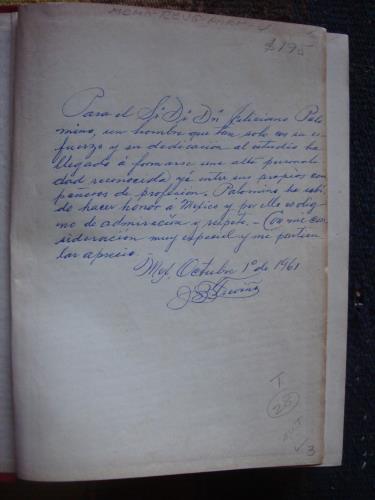 $195
Para el Sr Dr Dn Feliciano Palo
mino, un hombre que tan solo con su es
fuerzo y su dedicación al estudio ha
llegado á formarse una alta personali
dad reconocida yá entre sus propios com
pañeros de profesión. Palomino ha sabi
do hacer honor á México y por ello es dig
no de admiración y respeto. - Con mi con
sideración muy especial y mi particu
lar aprecio.
Mex. Octubre 1º de 1961
T
28
v 3